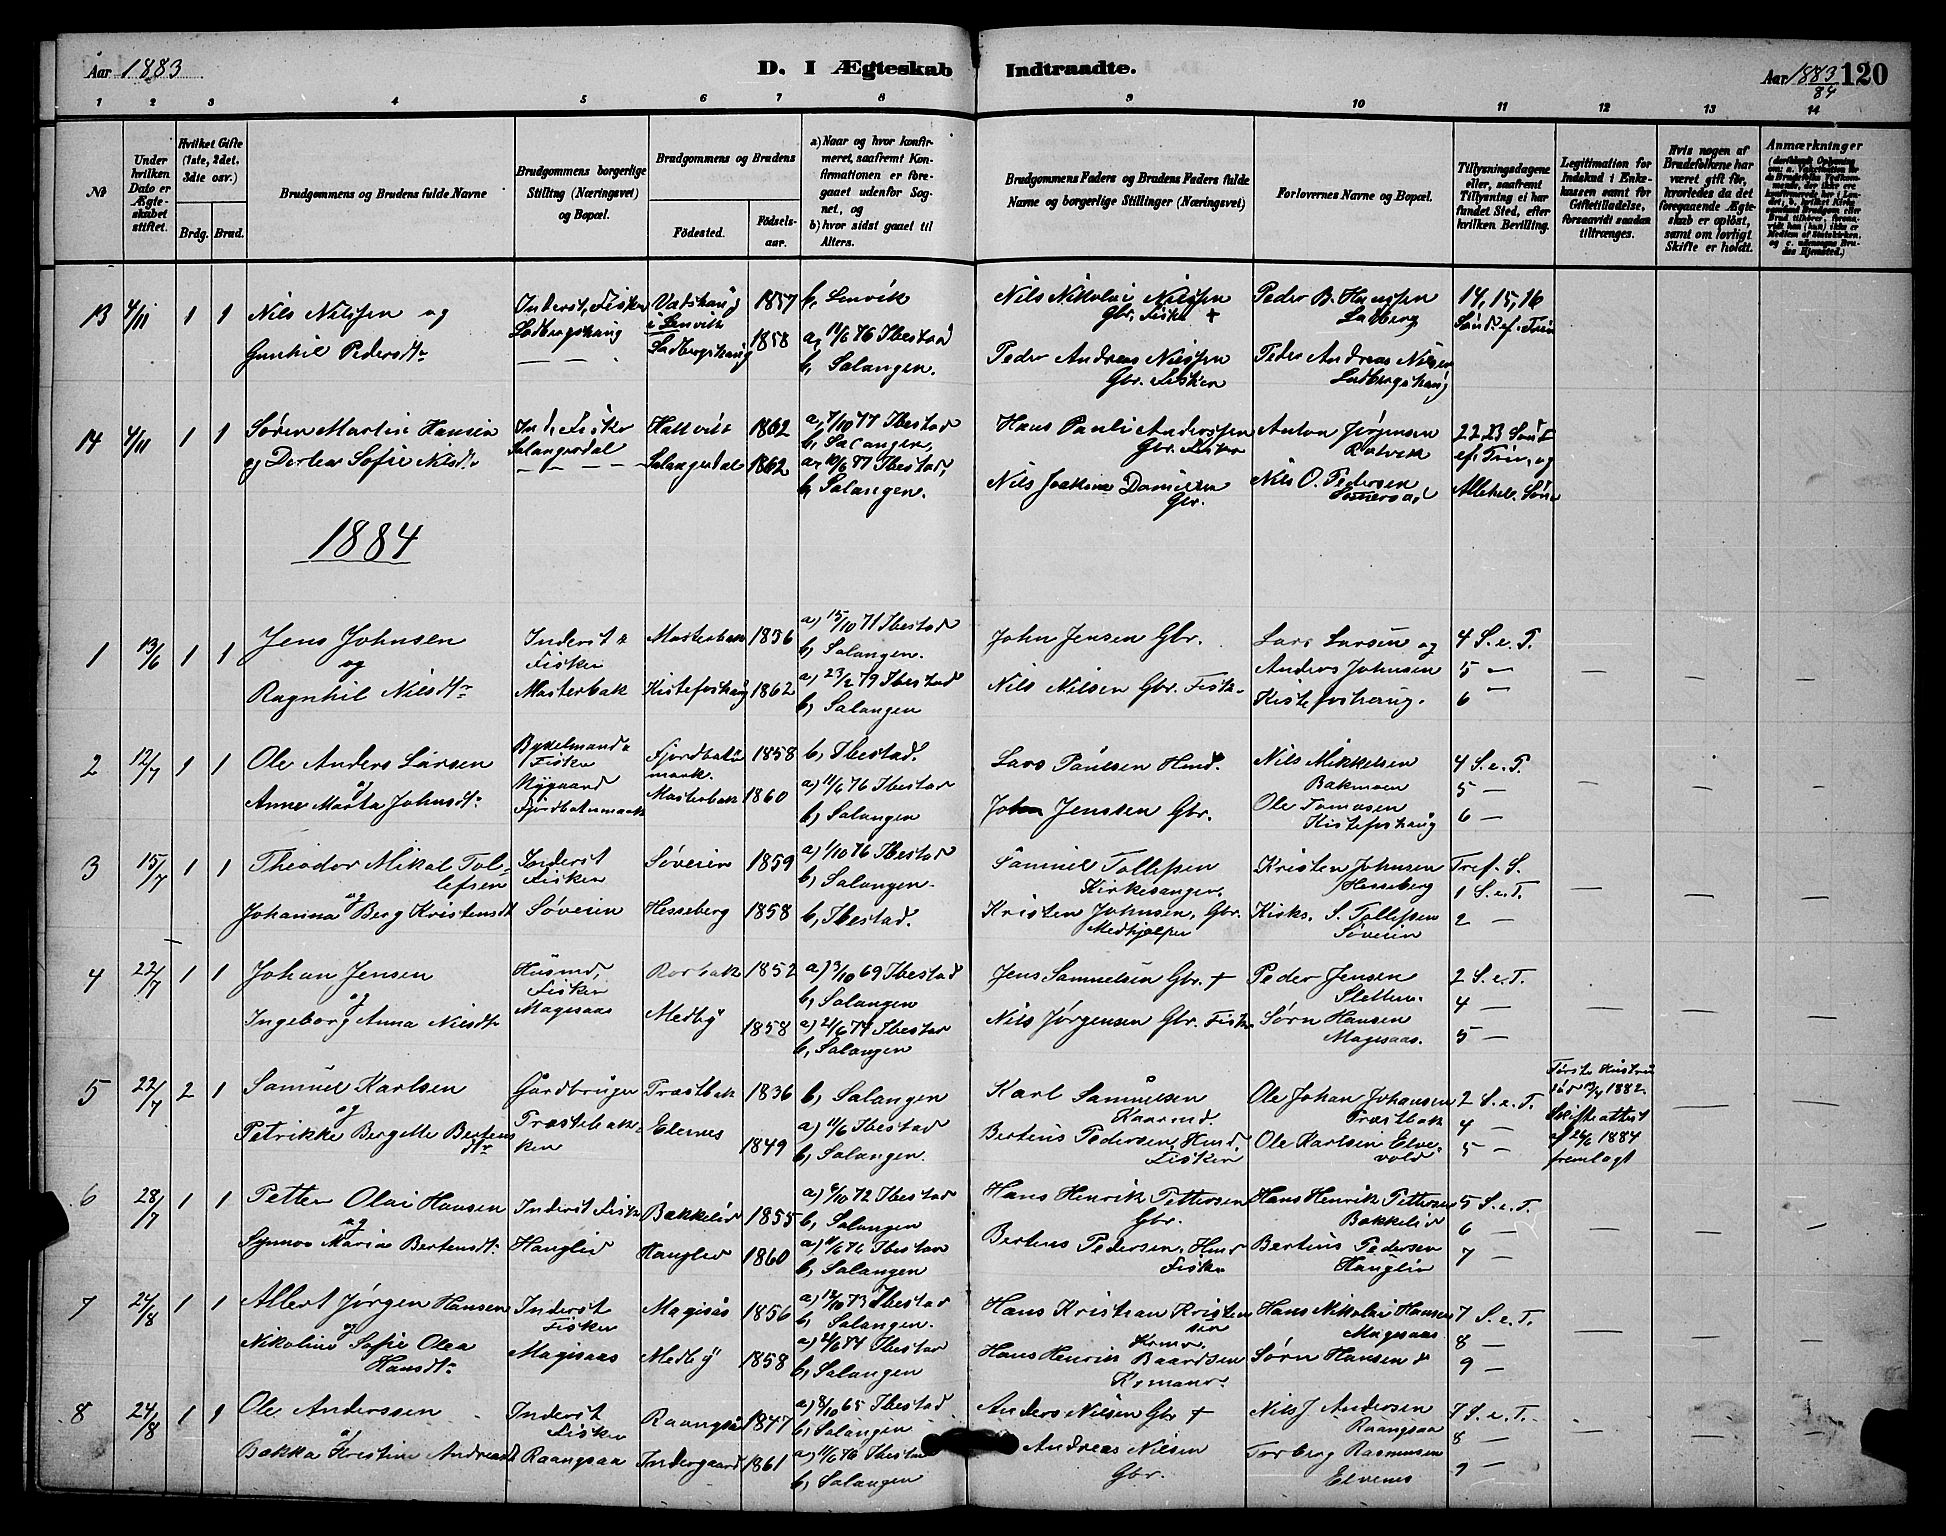 Aar 1883
D. I Ægteskab Indtraadte.
Aar 1883/84 120
1 2 3 4 5 6 7 8 9 10 11 12 13 14
No
Under hvilken Dato er Ægteskabet stiftet.
Hvilket Gifte (1ste, 2det, 3die osv.)
Brdg. Brud.
Brudgommens og Brudens fulde Navne
Brudgommens borgerlige Stilling (Næringsvei) og Bopæl.
Brudgommens og Brudens
Fødested. Fødsels-aar.
a) Naar og hvor konfirmeret, saafremt Konfirmationen er foregaaet udenfor Sognet, og
b) hvor sidst gaaet til Alters.
Brudgommens Faders og Brudens Faders fulde Navne og borgerlige Stillinger (Næringsvei)
Forlovernes Navne og Bopæl.
Tillysningsdagene eller, saafremt Tillysning ei har fundet Sted, efter hvilken Bevilling.
Legitimation for Indskud i Enkekassen samt for Giftetilladelse, forsaavidt saadan tiltrænges.
Hvis nogen af Brudefolkene har været gift før, hvorledes da det foregaaende Ægteskab er opløst, samt om lovligt Skifte er holdt.
Anmærkninger
13 4/11 1 1 Nils Nilssen og Inderst, Fisker 1857 b, Lenvik Nils Nikolai Nilssen Gbr. Fisker + Peder B. Hanssen 14, 15, 16
Gunhil Pedersdr 1858 a, 11/6 76 Ibestad b, Salangen. Peder Andreas Nilssen Gbr. Fisker Peder Andreas Nilsen Sønd. ef. Trin
14 4/11 1 1 Søren Martin Hansen Ind. Fisker Salangsdal 1862 a, 7/10 77 Ibestad b, Salangen, Hans Pauli Anderssen Gbr. Fisker Anton Jørgensen 22 23 Sønd.
og Dorthea Sofie Nilsdr Salangsdal 1862 a, 10/6 77 Ibestad, b, Salangen. Nils Joakim Danielsen Gbr. Nils O. Pedersen ef. Trin. og Allehel. Sønd
1884
1 13/6 1 1 Jens Johnsen Inderst Fisker Masterbak 1856 a) 15/10 71 Ibestad b, Salangen. John Jensen Gbr. Lars Larsen og 4 S. e. T.
og
Ragnhil Nilsdr Masterbak Kistefoshaug 1862 a) 23/2 79 Ibestad b, Salangen Nils Nilsen Gbr. Fisk. Anders Johnsen Kistefoshaug. 5 — 6 — — — —
2 12/7 1 1 Ole Anders Larsen Bygselmand Fisker Nygaard 1858 b, Ibestad. Lars Paulsen Hmd. Nils Mikkelsen Bakmoen 4 S. e. T.
og
Anne Marta Johnsdr Fjordbotnmark Masterbak 1860 a) 11/6 76 Ibestad b, Salangen John Jenssen Gbr. Ole Tomasen Kistefoshaug 5 — 6 — — — —
3 15/7 1 1 Theodor Mikal Tollefsen Inderst Fisker Søveien 1859 a) 1/10 76 Ibestad b, Salangen. Samuel Tollefsen Kirkesanger. Kristen Johnsen Hesseberg Tref. S.
og
Johanna Berg Kristensdr Søveien Hesseberg 1858 b, Ibestad. Kristen Johnsen, Gbr. Medhjælper Kirks. S. Tollefsen Søveien 1 S. e. T. 2 — — — —
4 22/7 1 1 Johan Jensen Husmd, Fisker Rotbak 1852 a) 3/10 69 Ibestad b, Salangen Jens Samuelsen Gbr. + Peder Jensen Sletten. 2 S. e. T.
og
Ingeborg Anna Nilsdr Magisaas Medby 1858 a) 21/6 74 Ibestad b, Salangen Nils Jørgensen Gbr. Fisker Sørn Hansen Magisaas. 4 — 5 — — — —
5 22/7 2 1 Samuel Karlsen Gårdbruger Trøstbak 1836 b, Salangen Karl Samuelsen Kaarmd. Ole Johan Johansen Trøstbak 2 S. e. T. Første Hustru død 1882.
og
Petrikke Bergitte Bertensdr Elvenes 1849 a) 11/6 Ibestad b, Salangen. Berteus Pedersen, Hmd. Fisker Ole Karlsen Elvevold 4 — 5 — Skifteattest af 26/6 1884 fremlagt — —
6 28/7 1 1 Petter Olai Hansen Inderst Fisker Bakkeli 1855 a) 6/10 72 Ibestad b, Salangen Hans Henrik Pettersen Gbr. Hans Henrik Pettersen Bakkeli 5 S. e. T.
og
Synnøv Maria Bertensdr Hauglid Hauglid 1860 a) 11/6 76 Ibestad b, Salangen Bertens Pedersen, Hmd Fisker Bertens Pedersen Hauglid 6 — 7 — — — —
7 24/8 1 1 Albert Jørgen Hansen Inderst Fisker Magisås 1856 a) 12/10 73 Ibestad b, Salangen. Hans Kristian Kristensen Hans Nikolai Hansen Magisaas 7 S. e. T.
og
Nikoline Sofie Olea Hansdr Magisaas Medby 1858 a) 21/6 74 Ibestad b, Salangen Hans Henrik Baardsen Sørn Hansen 8 — 9 — — — —
8 24/8 1 1 Ole Anderssen Inderst Fisker Raangsaa 1847 a) 8/10 65 Ibestad b, Salangen Anders Nilsen Gbr + Nils J Andersen Raangsaa 7 S. e. T.
og
Bakka Kristine Andreasdr Raangsaa Indergaard 1861 a) 11/6 76 Ibestad b, Salangen Andreas Nilsen Gbr. Torberg Rasmussen Elvenes 8 — 9 — — — —